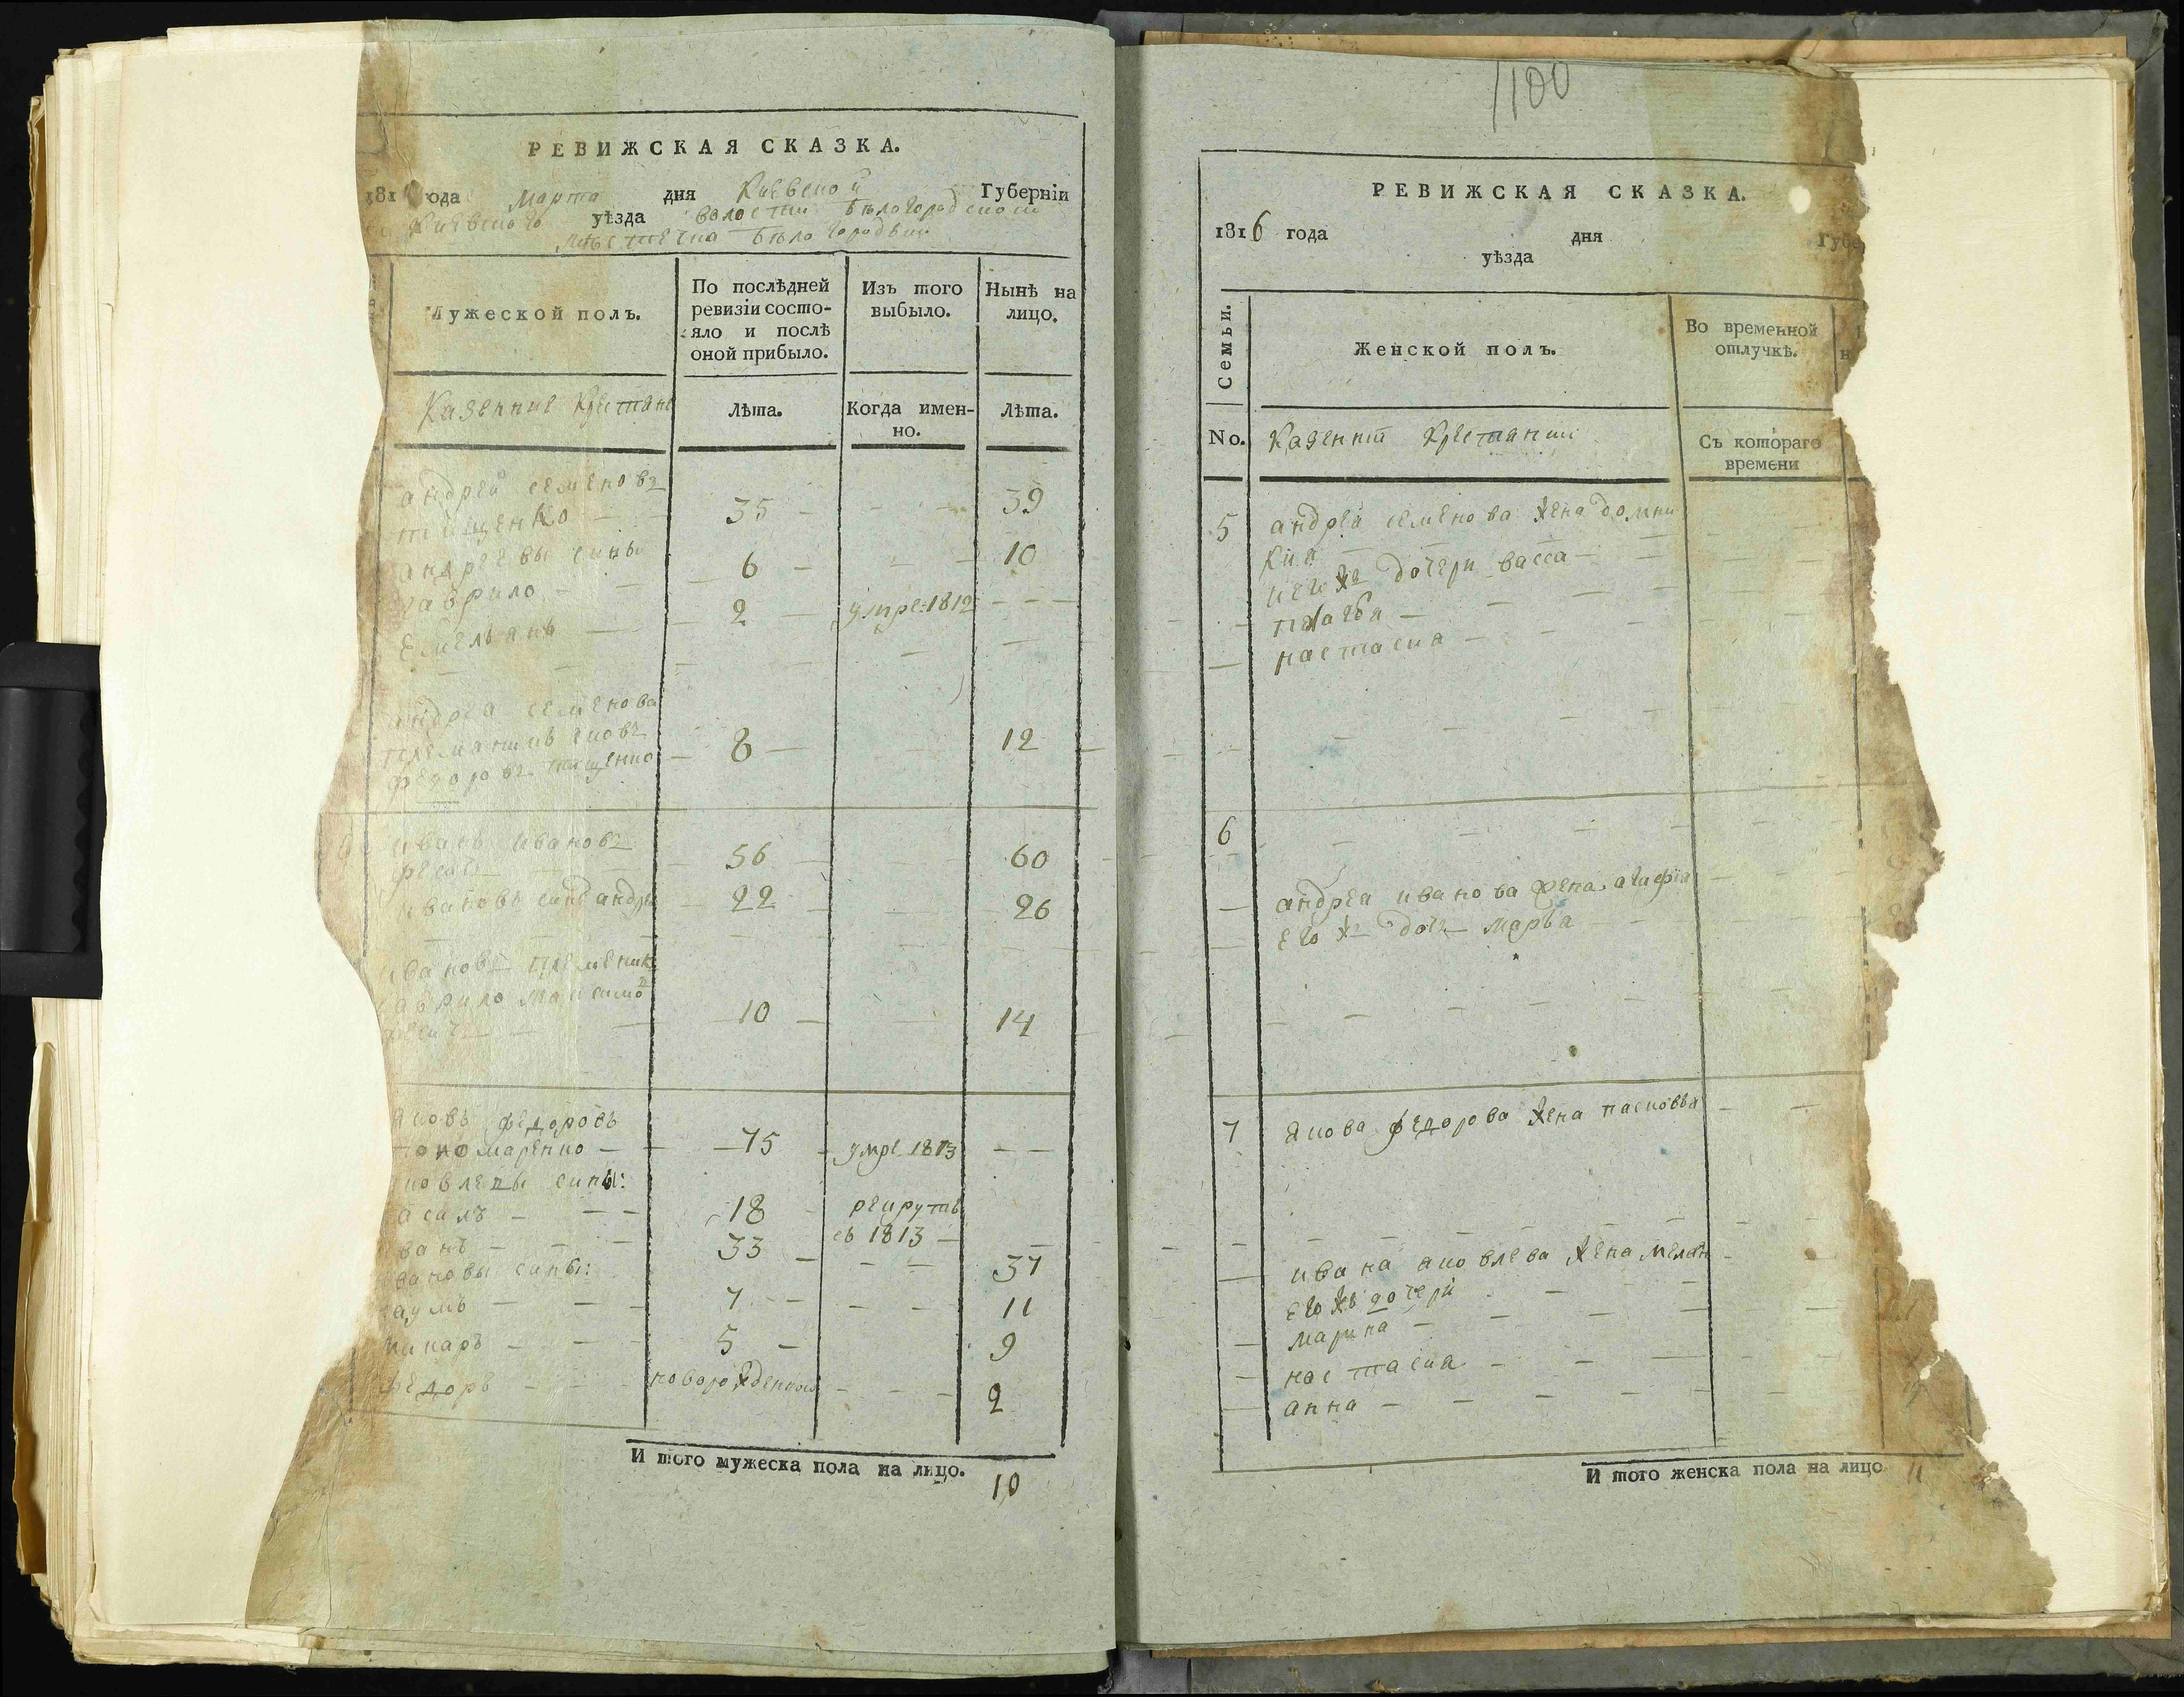 РЕВИЖСКАЯ СКАЗКА.
181 года марта дня Киевской Губерніи
Киевского уѣзда волости бѣлогородской
местечка бѣлогородки
Мужеской полъ.
По послѣдней ревизіи состо-
яло и послѣ
оной прибыло.
Изъ того
выбыло.
Нынѣ на
лицо.
Казенние Крестяне
Лѣта.
Когда имен-
но.
Лѣта.
андрей семеновъ
тищенко 35 39
андреевы сины
гаврило 6 10
Емельянъ 2 умре 1812
андрея семенова
племянникъ
федоровъ тищенко 8 12
иванъ ивановъ
56 60
ивановъ синъ андрей 22 26
ивановъ племеник
гаврило максимо 10 14
яковъ федоровъ
пономаренко 75 умре 1813
яковлевы сины:
василь 18 рекрутъ
съ 1813
иванъ 33 37
ивановы сины:
наумъ 7 11
макаръ 5 9
федоръ новорожденной 2
И того мужеска пола на лицо. 10
1100
РЕВИЖСКАЯ СКАЗКА.
1816 года дня Губе
уѣзда
Семьи.
Женской полъ.
Во временной
отлучкѣ.
No.
Казенни Крестянки
Съ котораго
времени
5 андрея семенова жена домни
кия
его же дочери васса
настасия
6
андрея иванова жена агафия
его же дочь марья
7 якова федорова жена пасковья
ивана яковлева жена мелан
его же дочери
марина
настасия
анна
И того женска пола на лицо 11